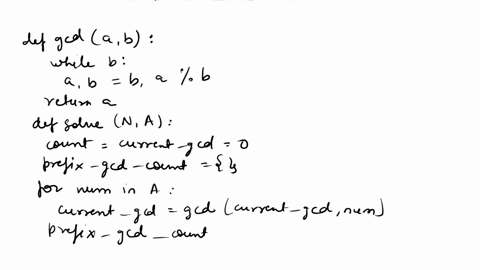 def gcd (a,b) :
while b:
a, b = b, a % b
return a
def solve (N, A) :
count = current-gcd = 0
prefix-gcd-count = {}
for num in A :
current-gcd = gcd (current-gcd, num)
prefix-gcd-count